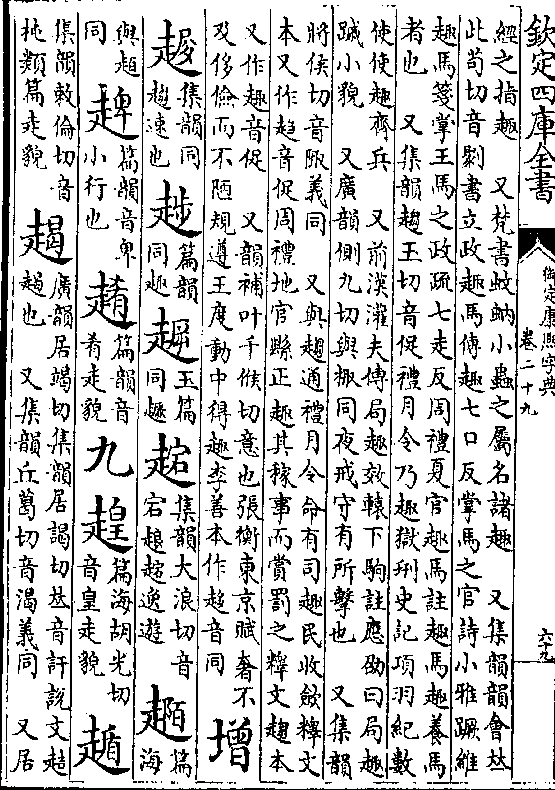 欽定四庫全書
御定康熙字典
卷二十九
六十九
經之指趣　又梵書蚊蚋小蟲之屬名諸趣　又集韻韻會𠀤
此苟切音𠟡書立政趣馬傳趣七口反掌馬之官詩小雅蹶維
趣馬箋掌王馬之政疏七走反周禮夏官趣馬註趣馬趣養馬
者也　又集韻趨玉切音促禮月令乃趣獄刑史記項羽紀數
使使趣齊兵　又前漢灌夫傳局趣效轅下駒註應劭曰局趣
蹴小貌　又廣韻側九切與掫同夜戒守有所擊也　又集韻
將侯切音陬義同　又與趨通禮月令命有司趣民收斂釋文
本又作趨音促周禮地官縣正趣其稼事而賞罰之釋文趨本
又作趣音促　又韻補叶千候切意也張衡東京賦奢不
及侈儉而不陋規遵王度動中得趣李善本作趨音同
增
集韻同
趨速也
篇韻
同趣
玉篇
同趣
趤
集韻大浪切音
宕趤趤逸遊
篇海
與趙
同
䟾
篇韻音卑
小行也
篇韻音
肴走貌
九
趪
篇海胡光切
音皇走貌
集韻敕倫切音
杶類篇走貌
趨
廣韻居竭切集韻居謁切𠀤音訐說文趌
趨也　又集韻丘葛切音渴義同　又居